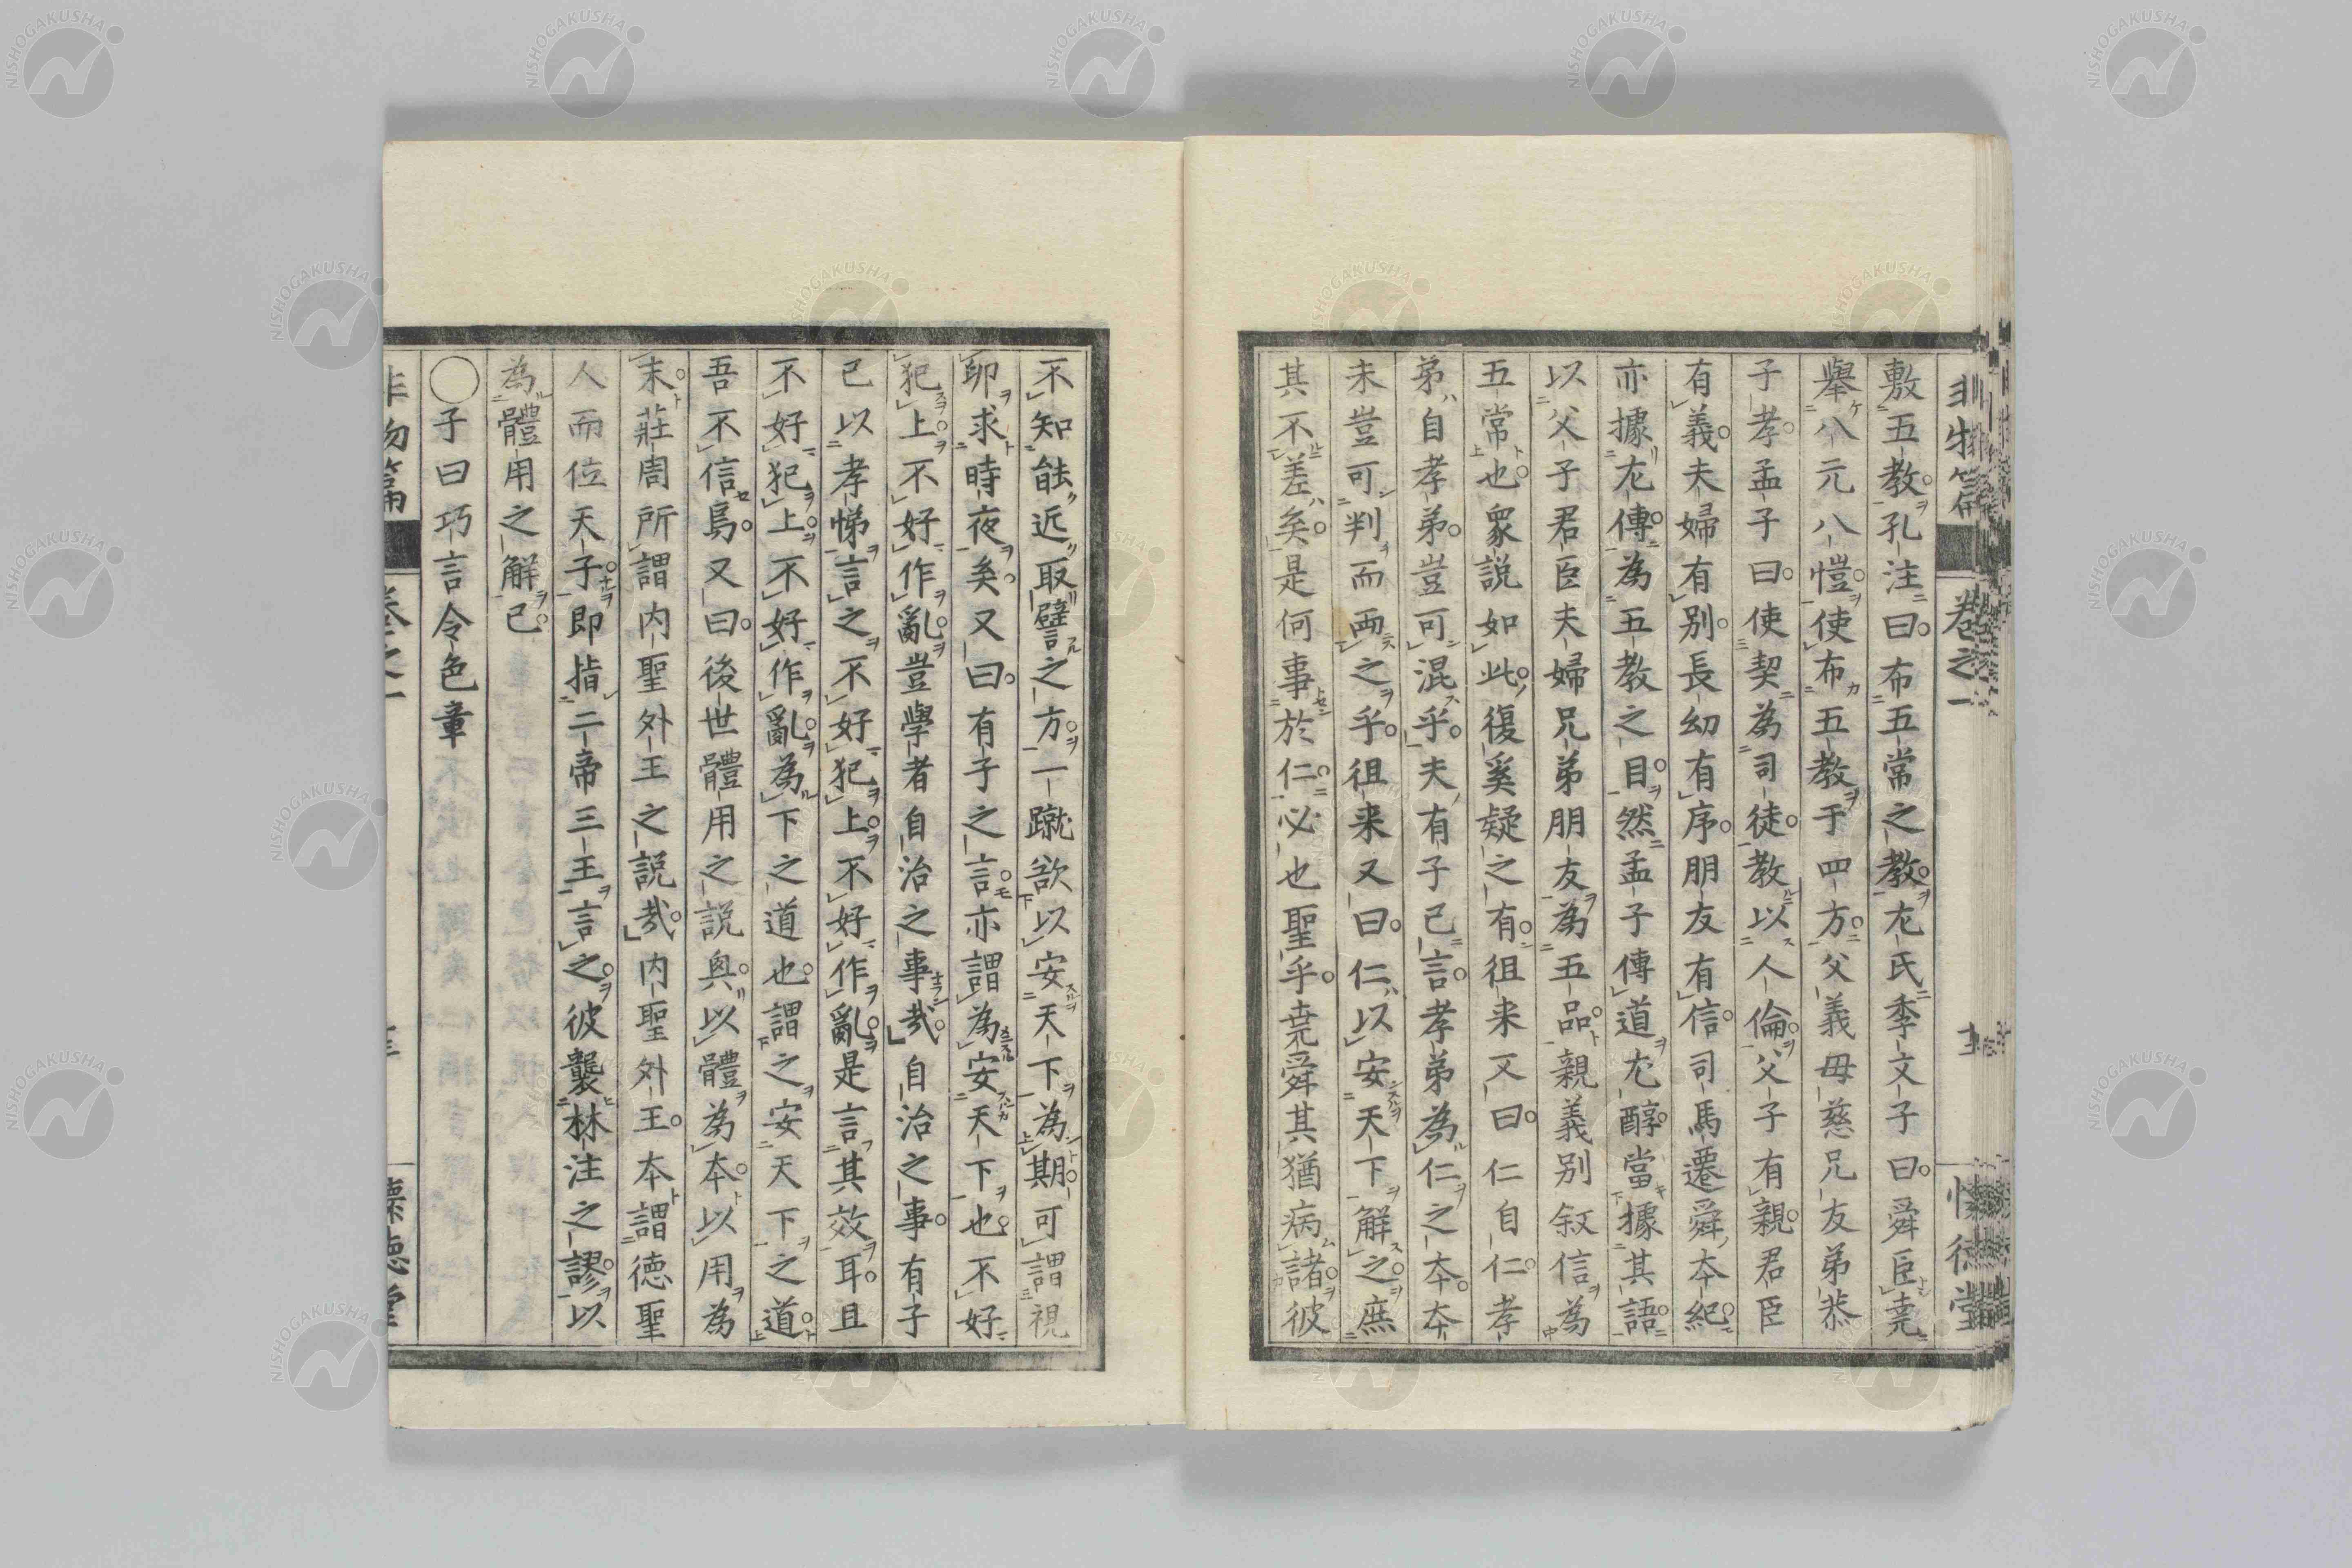 非物篇 卷之一 懐徳堂
敷五教孔注曰布五常之教左氏季文子曰舜臣尭
舉八元八愷使布五教于四方父義母慈兄友弟恭
子孝孟子曰使契為司徒教以人倫父子有親君臣
有義夫婦有別長幼有序朋友有信司馬遷舜本紀
亦據左傳為五教之目然孟子傳道左醇當據其語
以父子君臣夫婦兄弟朋友為五品親義別叙信為
五常也衆説如此復奚疑之有徂来又曰仁自仁孝
弟自孝弟豈可混乎夫有子已言孝弟為仁之本本
未豈可判而兩之乎徂来又曰仁以安天下解之庶
其不差矣是何事於仁必也聖乎尭舜其猶病諸彼
不知能近取譬之方一蹴欲以安天下為期可謂視
卵求時夜矣又曰有子之言亦謂為安天下也不好
犯上不好作亂豈學者自治之事哉自治之事有子
已以孝悌言之不好犯上不好作亂是言其效耳且
不好犯上不好作亂為下之道也謂之安天下之道
吾不信焉又曰後世體用之説興以體為本以用為
末莊周所謂内聖外王之説哉内聖外王本謂徳聖
人而位天子即指二帝三王言之彼襲林注之謬以
為體用之解已
○子曰巧言令色章
非物篇 卷之一 懐徳堂
NISHOGAKUSHA